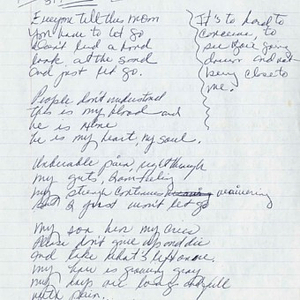 Everyone tell this mom
You have to let go
Don't hold a hand
look at the good
And just let go.
It's to hard to
conceive, to
see
down and not
being close to
me.
People don't understand
this is my blood and
he is mine
he is my heart, my soul.
Unbearable pain, right through
my guts,
my continues
I won't let go
My son
Please don't give up and die
And take what's left of me.
My hair is growing gray
my days are long and full
with pain.